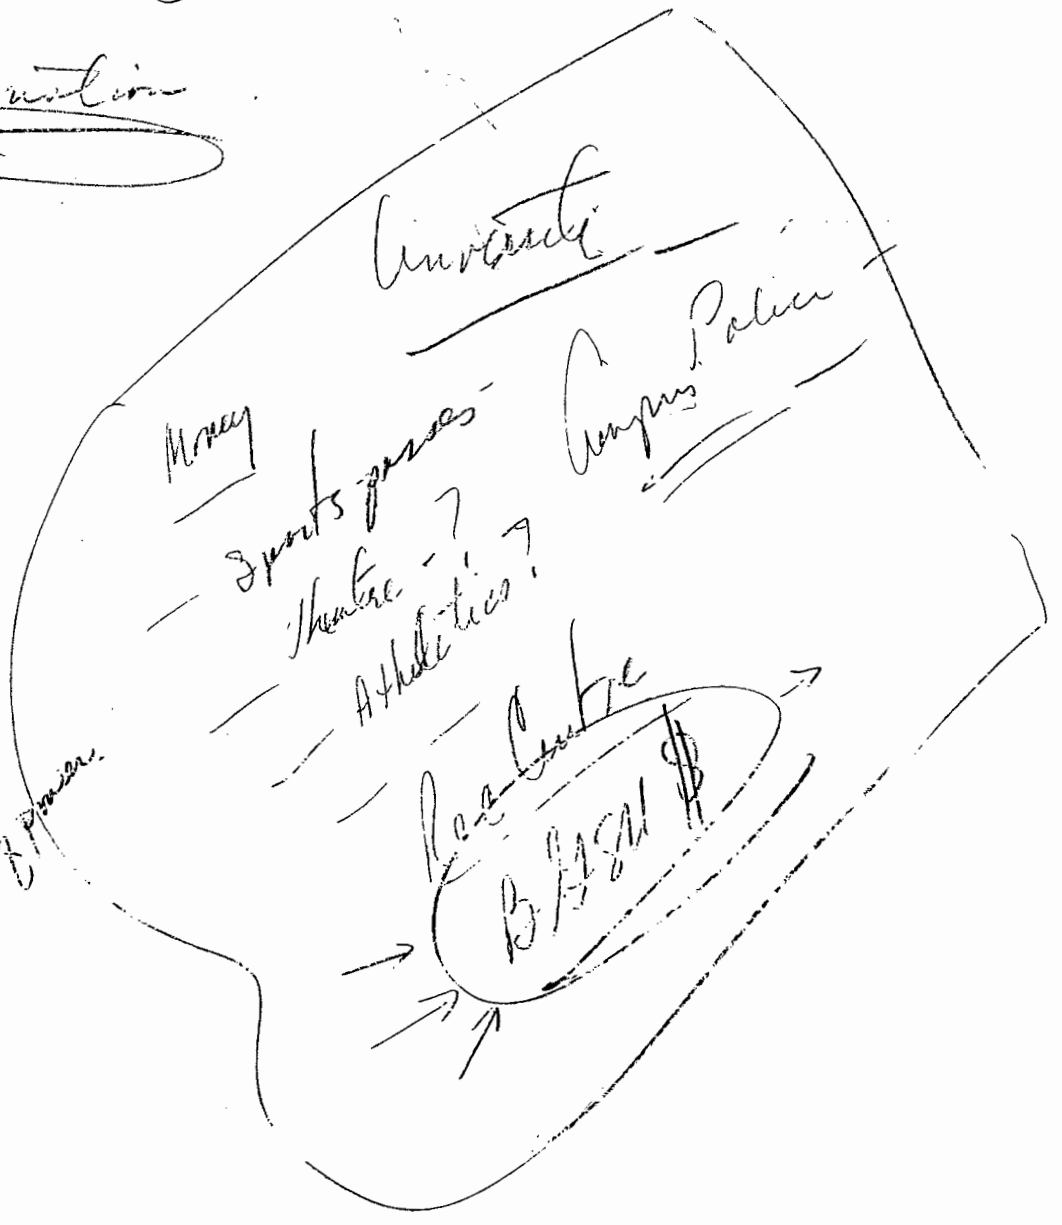 University
Campus Police
Money
Sports-passes-
Theatre-?
Athletics?
Rec Centre
BASH $